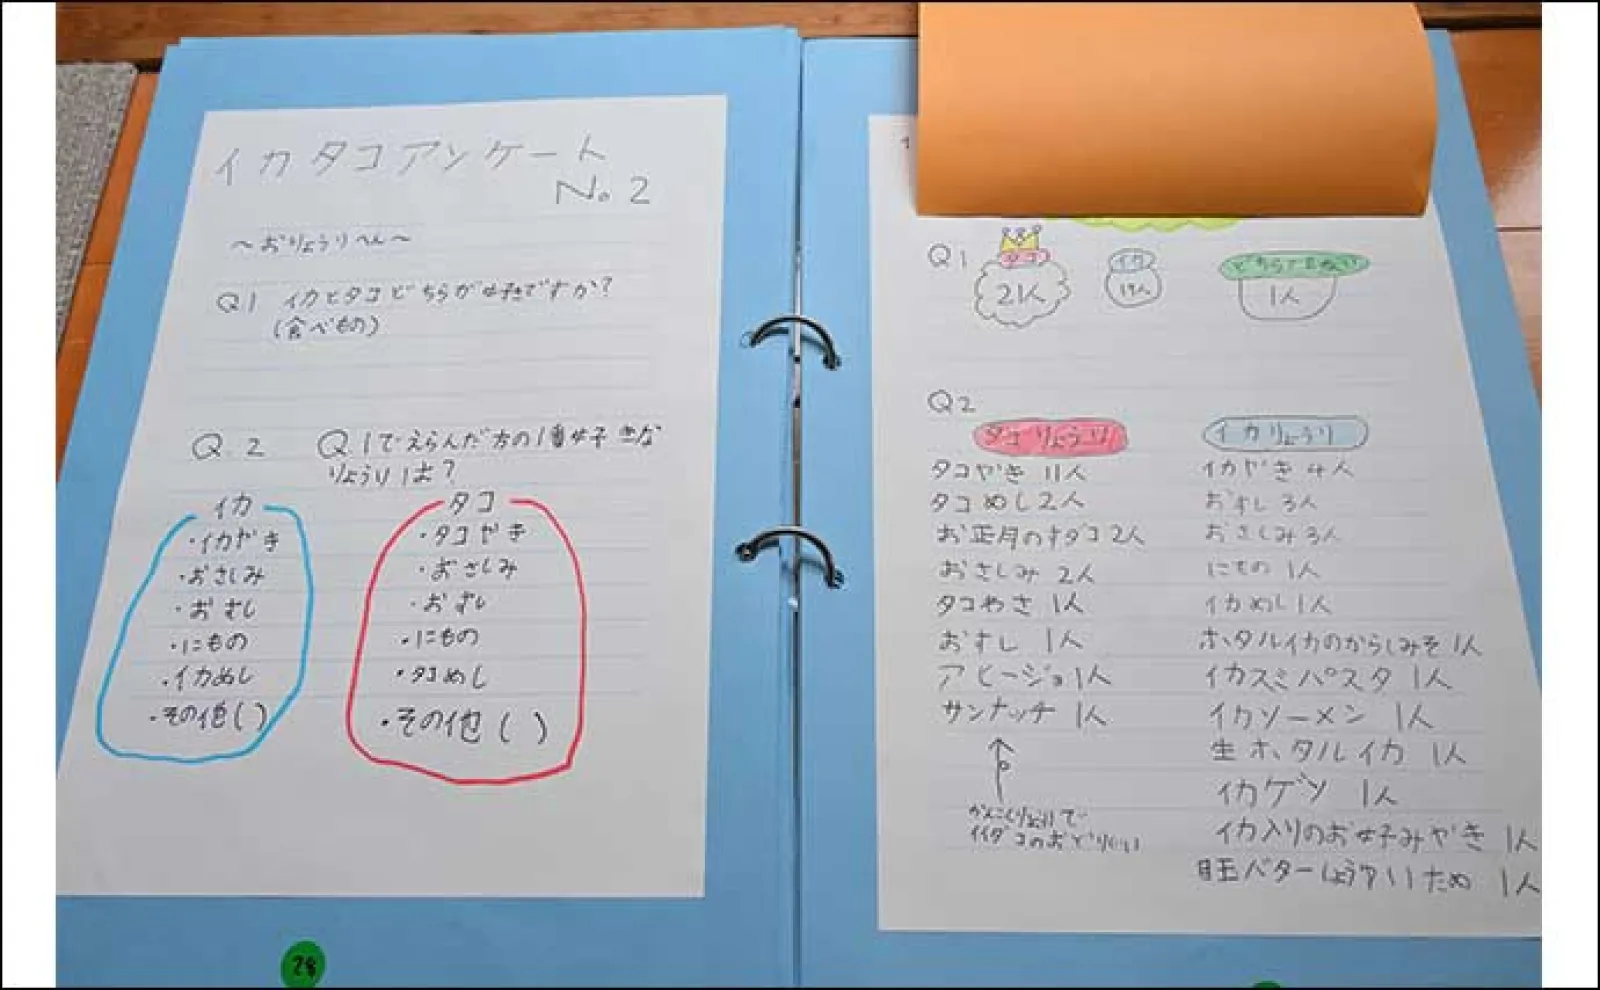 イカタコアンケート
No.2
～おりょうりへん～
Q1 イカとタコどちらが好きですか？
(食べもの)
Q.2 Q1でえらんだ方の1番好きな
りょうりは？
イカ
・イカやき
・おさしみ
・おすし
・にもの
・イカめし
・その他( )
タコ
・タコやき
・おさしみ
・おすし
・にもの
・タコめし
・その他( )
28
Q1
タコ
21人
イカ
19人
どちらでもない
1人
Q2
タコりょうり
タコやき 11人
タコめし 2人
お正月のすダコ 2人
おさしみ 2人
タコわさ 1人
おすし 1人
アヒージョ 1人
サンナッチ 1人
かんこくりょうりで
イイダコのおどりぐい
イカりょうり
イカやき 4人
おすし 3人
おさしみ 3人
にもの 1人
イカめし 1人
ホタルイカのからしみそ 1人
イカスミパスタ 1人
イカソーメン 1人
生ホタルイカ 1人
イカゲソ 1人
イカ入りのお好みやき 1人
目玉バターしょうゆいため 1人